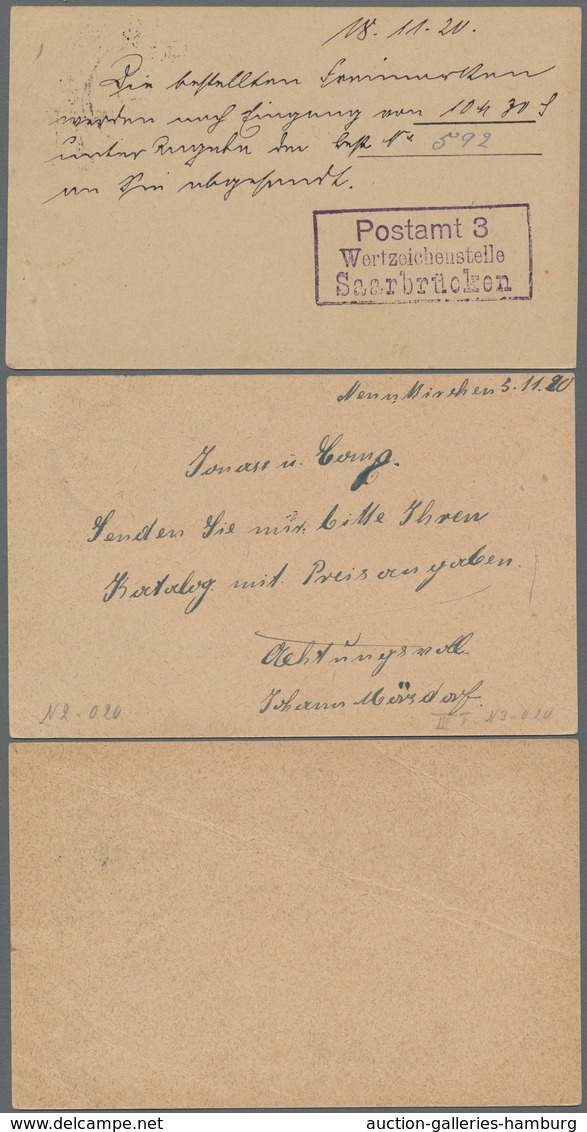 18. 11. 20.
Die bestellten Freimarken
werden nach Eingang von 10 M 30 S
unter Angabe der Best N° 592
an Sie abgesandt.
Postamt 3
Wertzeichenstelle
Saarbrücken
Neunkirchen 3.11.20
Jonass u. Comp.
Senden Sie mir bitte Ihren
Katalog mit Preisangaben.
Achtungsvoll
Johann Märsdorf.
N2-020
III T N3-020
auction-galleries-hamburg